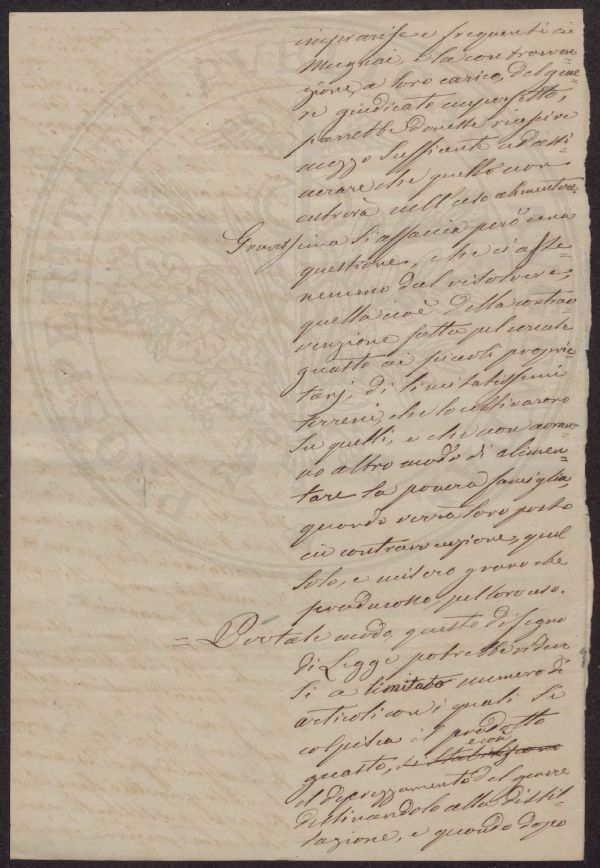 improvvise e frequenti ai
Mugnai, e la contravven-
zione, a loro carico, del gene-
re giudicato imperfetto,
parrebbe dovesse riuscire
mezzo sufficiente ad assi-
curare che quello non
entrerà nell'uso alimentare.
Gravissima si affaccia però una
questione, che ci aste-
nemmo dal risolvere,
quella cioè della contrav-
venzione fatta pel cereale
guasto ai piccoli proprie-
tarj, di limitatissimi
terreni, che lo coltivarono
su quelli, e che non avran-
no altro modo di alimen-
tare la povera famiglia,
quando verrà loro posto
in contravvenzione, quel
solo, e misero grano che
produrono pel loro uso.
= Per tale modo, questo disegno
di Legge potrebbe ridur
si a limitato numero di
articoli con i quali si
colpisca il prodotto
guasto, e con
il deprezzamento del genere
destinandolo alla distil-
lazione, e quando dopo